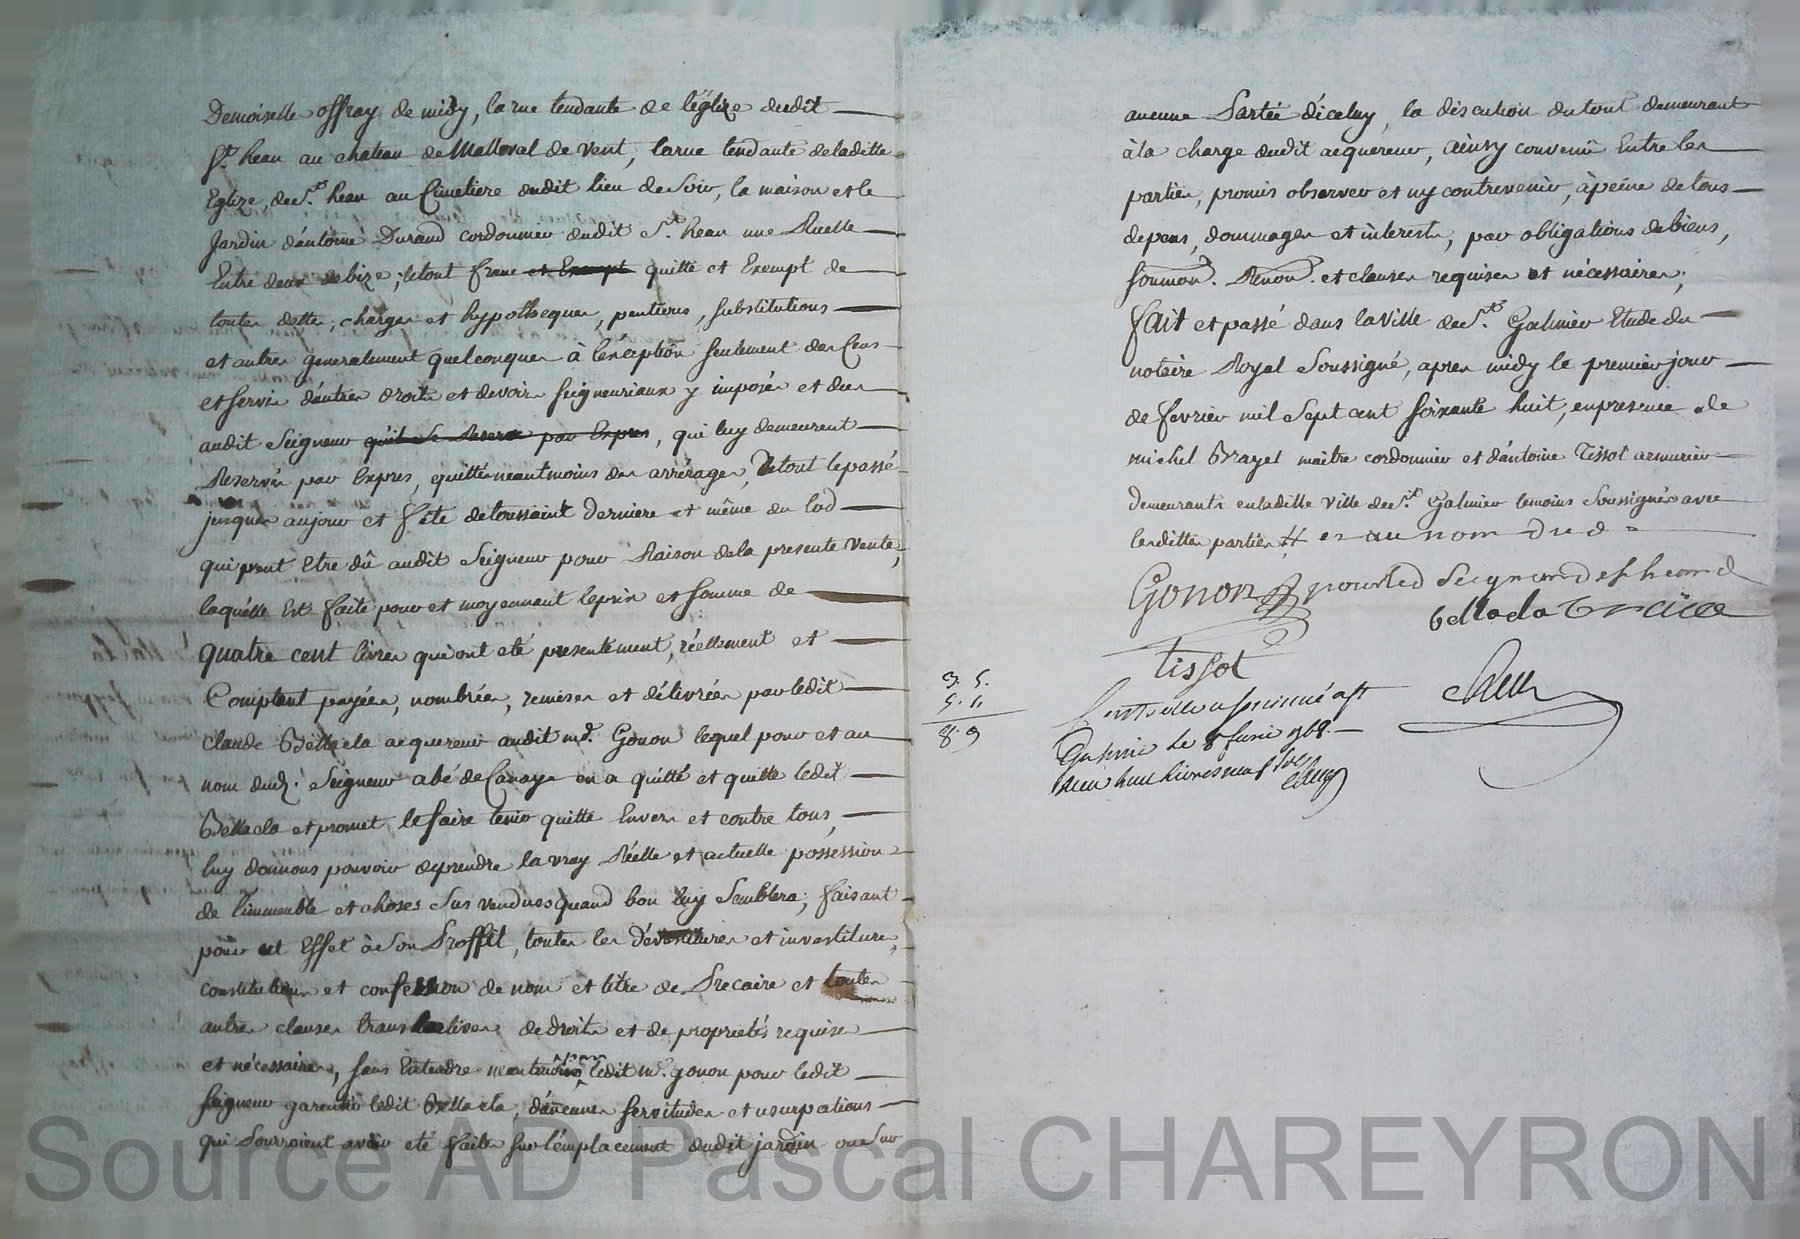 Demoiselle offray de midy, la rue tendante de l'églize dudit
St. heau au chateau de Malleval de vent, la rue tendante de laditte
Eglize, de St. heau au Cimetiere dudit lieu de soir, la maison et le
Jardin d'antoine Durand cordonnier dudit St. heau une Ruelle
Entre deux de bize, le tout franc et Exempt quitte et Exempt de
toutes dettes, charges et hypotheques, pentions, substitutions
et autres generalement quelconques à l'exception seulement des Cens
et servis d'autres droits et devoirs seigneuriaux y imposés et dus
audit Seigneur qu'il se Reserve par Expres, qui luy demeurent
Reservés par Expres, quitte neantmoins des arrérages, de tout le passé
jusques au jour et fête de toussaint derniere et même du lod
qui peut Etre dû audit Seigneur pour Raison de la presente vente,
laquelle Est faite pour et moyennant le prix et somme de
quatre cent livres qui ont eté presentement, réellement et
Comptant payées, nombrées, remises et délivrées par ledit
claude Bellacla acquereur audit me. Gonon lequel pour et au
nom dud. Seigneur abé de Canaye en a quitté et quitte ledit
Bellacla et promet le faire tenir quitte Envers et contre tous,
luy donnons pouvoir de prendre la vray Réelle et actuelle possession
de l'immeuble et choses sus vendues quand bon luy Semblera, faisant
pour cet Effet à son Proffit, toutes les dévestitures et investitures,
constitution et confession de nom et titre de Precaire et toutes
autres clauses translatives de droits et de proprietés requises
et nécessaires, sans Entendre neantmoins ledit me. gonon pour ledit
seigneur garentir ledit Bellacla, d'aucunes servitudes et usurpations
qui Pourroient avoir eté faites sur l'emplacement dudit jardin ou sur
aucune Partie d'iceluy, la discution du tout demeurant
à la charge dudit acquereur, ainsy convenu Entre les
parties, promis observer et ny contrevenir, à peine de tous
depens, dommages et interests, par obligations de biens,
soumon. Renon. et clauses requises et nécessaires,
fait et passé dans la ville de St. Galmier Etude du
notaire Royal Soussigné, apres midy le premier jour
de fevrier mil Sept cent soixante huit, en presence de
michel Brazet maitre cordonnier et d'antoine Tissot armurier
demeurants en laditte ville de St. Galmier temoins Soussignés avec
lesdittes parties et au nom dud
Gonon pour led Seigneur
tissot
3. 5.
5. 4.
8. 9
Controllé a
Galmier le 8 fevrier 1768.
Recu huit livres neuf sols